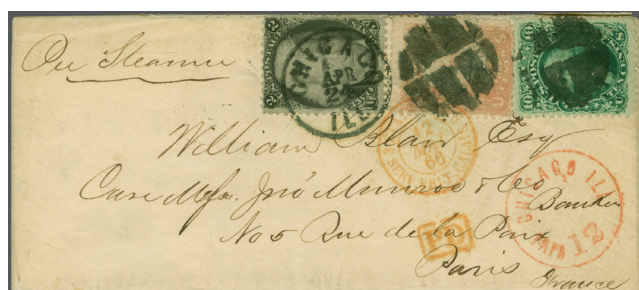 Per Steamer
CHICAGO
APR
ILL
William Blair Esq
Care Messrs. Jno Munroe & Co
Banker
No 5 Rue de la Paix
Paris
France
66
PD
CHICAGO ILL
PAID 12